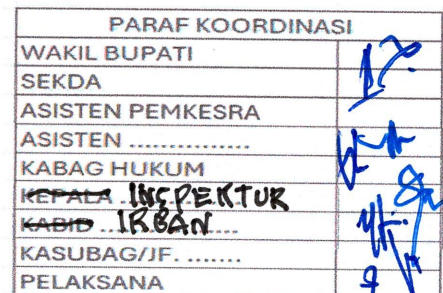 PARAF KOORDINASI
WAKIL BUPATI
SEKDA
ASISTEN PEMKESRA
ASISTEN ...............
KABAG HUKUM
KEPALA INSPEKTUR
KABID ... IRBAN .....
KASUBAG/JF. .......
PELAKSANA